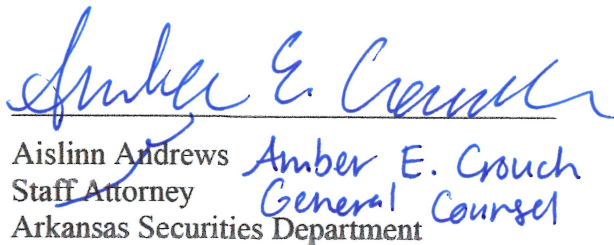 Amber E. Crouch
Aislinn Andrews Amber E. Crouch
Staff Attorney General Counsel
Arkansas Securities Department